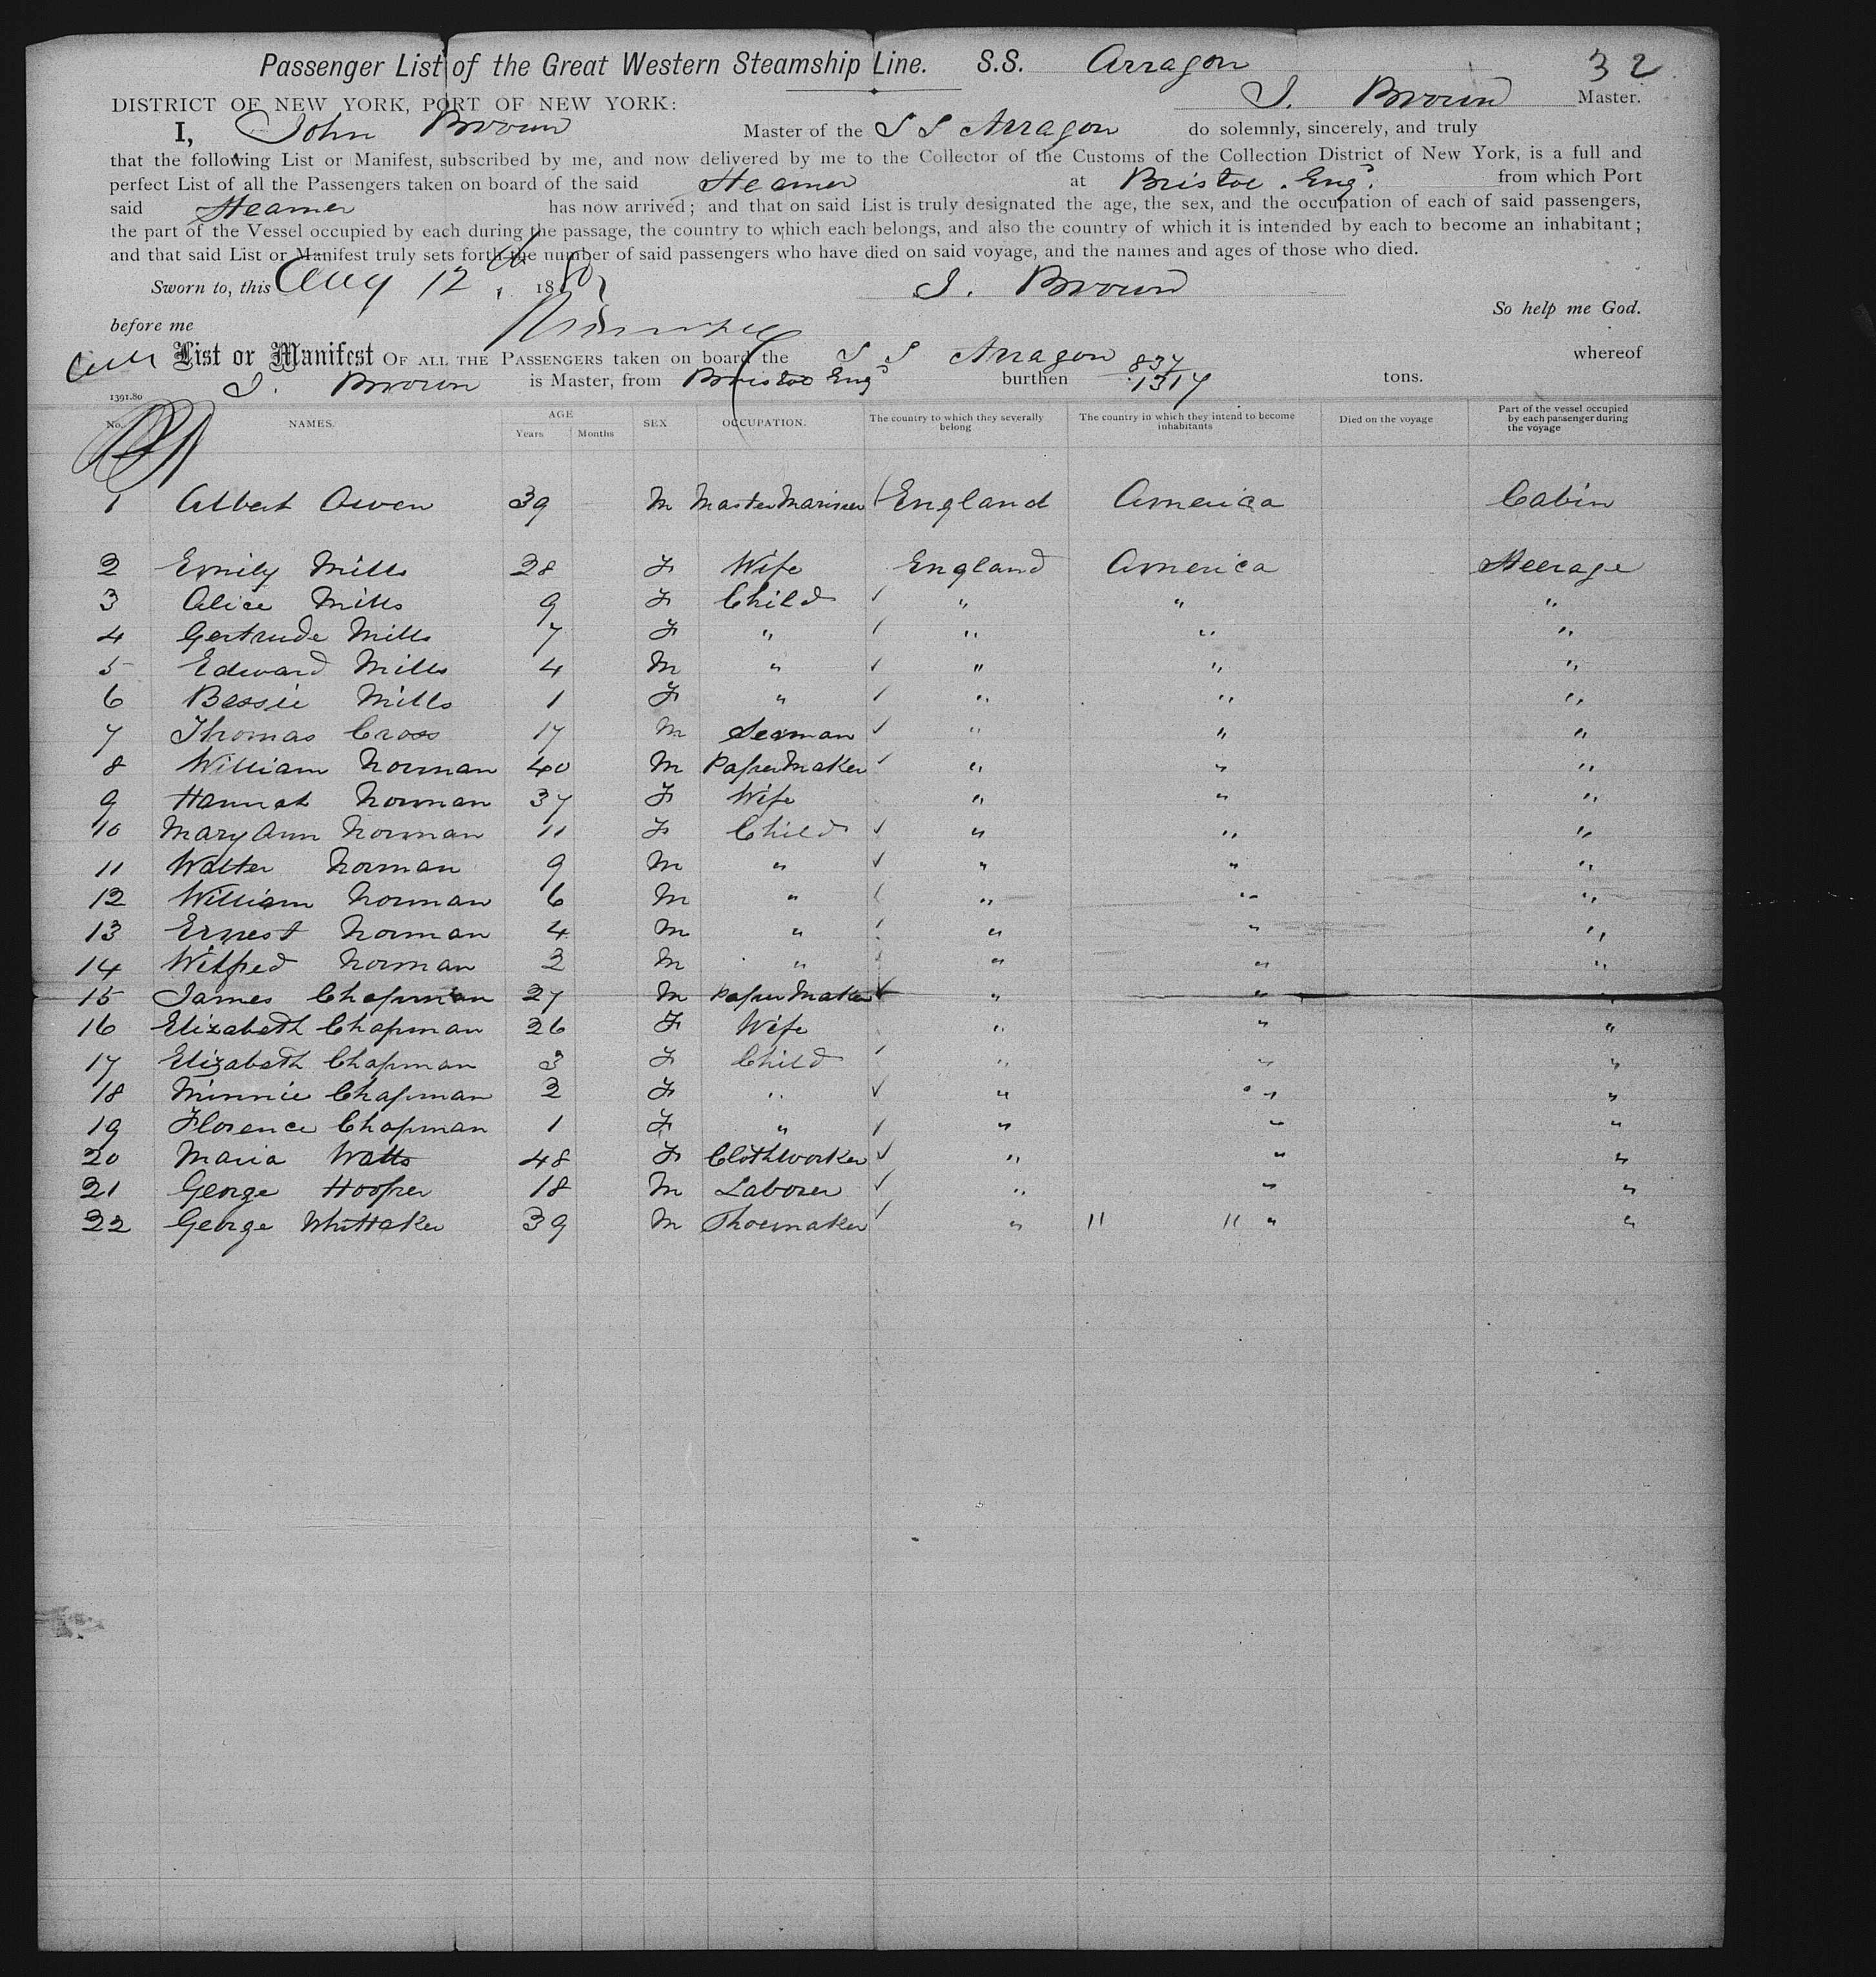 Passenger List of the Great Western Steamship Line. S.S. Arragon 32
DISTRICT OF NEW YORK, PORT OF NEW YORK: J. Brown Master.
I, John Brown Master of the S S Arragon do solemnly, sincerely, and truly
that the following List or Manifest, subscribed by me, and now delivered by me to the Collector of the Customs of the Collection District of New York, is a full and
perfect List of all the Passengers taken on board of the said Steamer at Bristol. Engd. from which Port
said Steamer has now arrived; and that on said List is truly designated the age, the sex, and the occupation of each of said passengers,
the part of the Vessel occupied by each during the passage, the country to which each belongs, and also the country of which it is intended by each to become an inhabitant;
and that said List or Manifest truly sets forth the number of said passengers who have died on said voyage, and the names and ages of those who died.
Sworn to, this Aug 12 th 18 J. Brown
So help me God.
before me
List or Manifest OF ALL THE PASSENGERS taken on board the S S Arragon whereof
J. Brown is Master, from Bristol Engd burthen 837 1317 tons.
1391.80
No. NAMES. AGE Years Months SEX OCCUPATION. The country to which they severally belong The country in which they intend to become inhabitants Died on the voyage Part of the vessel occupied by each passenger during the voyage
1 Albert Owen 39 M Master Mariner England America Cabin
2 Emily Mills 28 F Wife England America Steerage
3 Alice Mills 9 F Child " " "
4 Gertrude Mills 7 F " " " "
5 Edward Mills 4 M " " " "
6 Bessie Mills 1 F " " " "
7 Thomas Cross 17 M Seaman " " "
8 William Norman 40 M Paper Maker " " "
9 Hannah Norman 37 F Wife " " "
10 Mary Ann Norman 11 F Child " " "
11 Walter Norman 9 M " " " "
12 William Norman 6 M " " " "
13 Ernest Norman 4 M " " " "
14 Wilfred Norman 2 M " " " "
15 James Chapman 27 M Paper Maker " " "
16 Elizabeth Chapman 26 F Wife " " "
17 Elizabeth Chapman 3 F Child " " "
18 Minnie Chapman 2 F " " " "
19 Florence Chapman 1 F " " " "
20 Maria Watts 48 F Clothworker " " "
21 George Hooper 18 M Laborer " " "
22 George Whittaker 39 M Shoemaker " " " " "